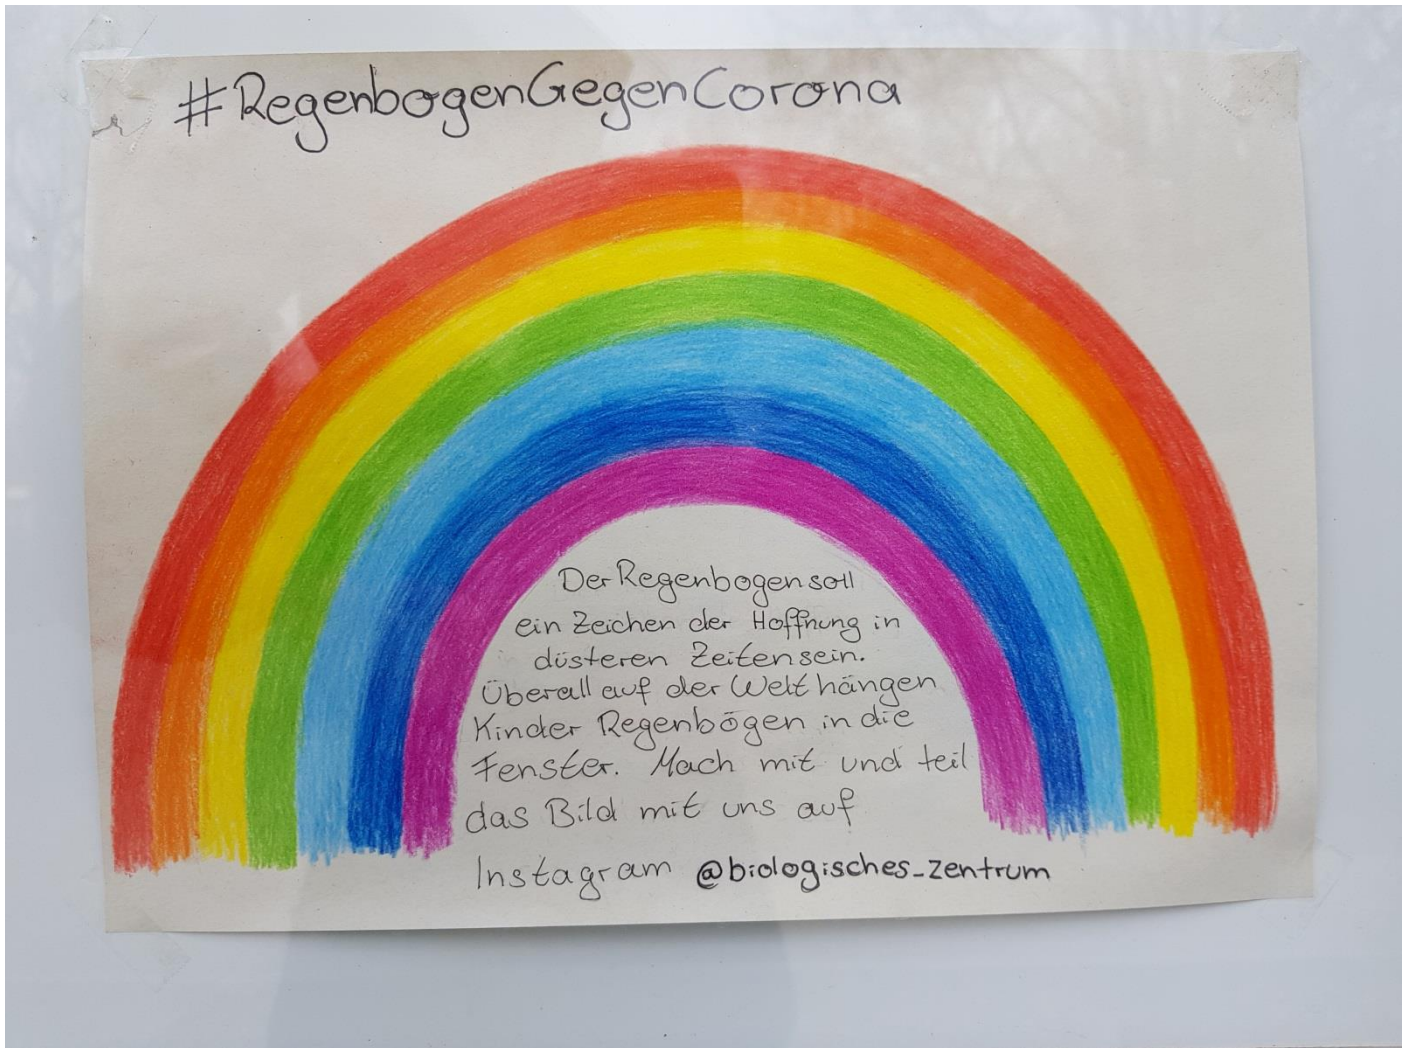 #RegenbogenGegenCorona
Der Regenbogen soll
ein Zeichen der Hoffnung in
düsteren Zeiten sein.
Überall auf der Welt hängen
Kinder Regenbögen in die
Fenster. Mach mit und teil
das Bild mit uns auf
Instagram @biologisches_zentrum